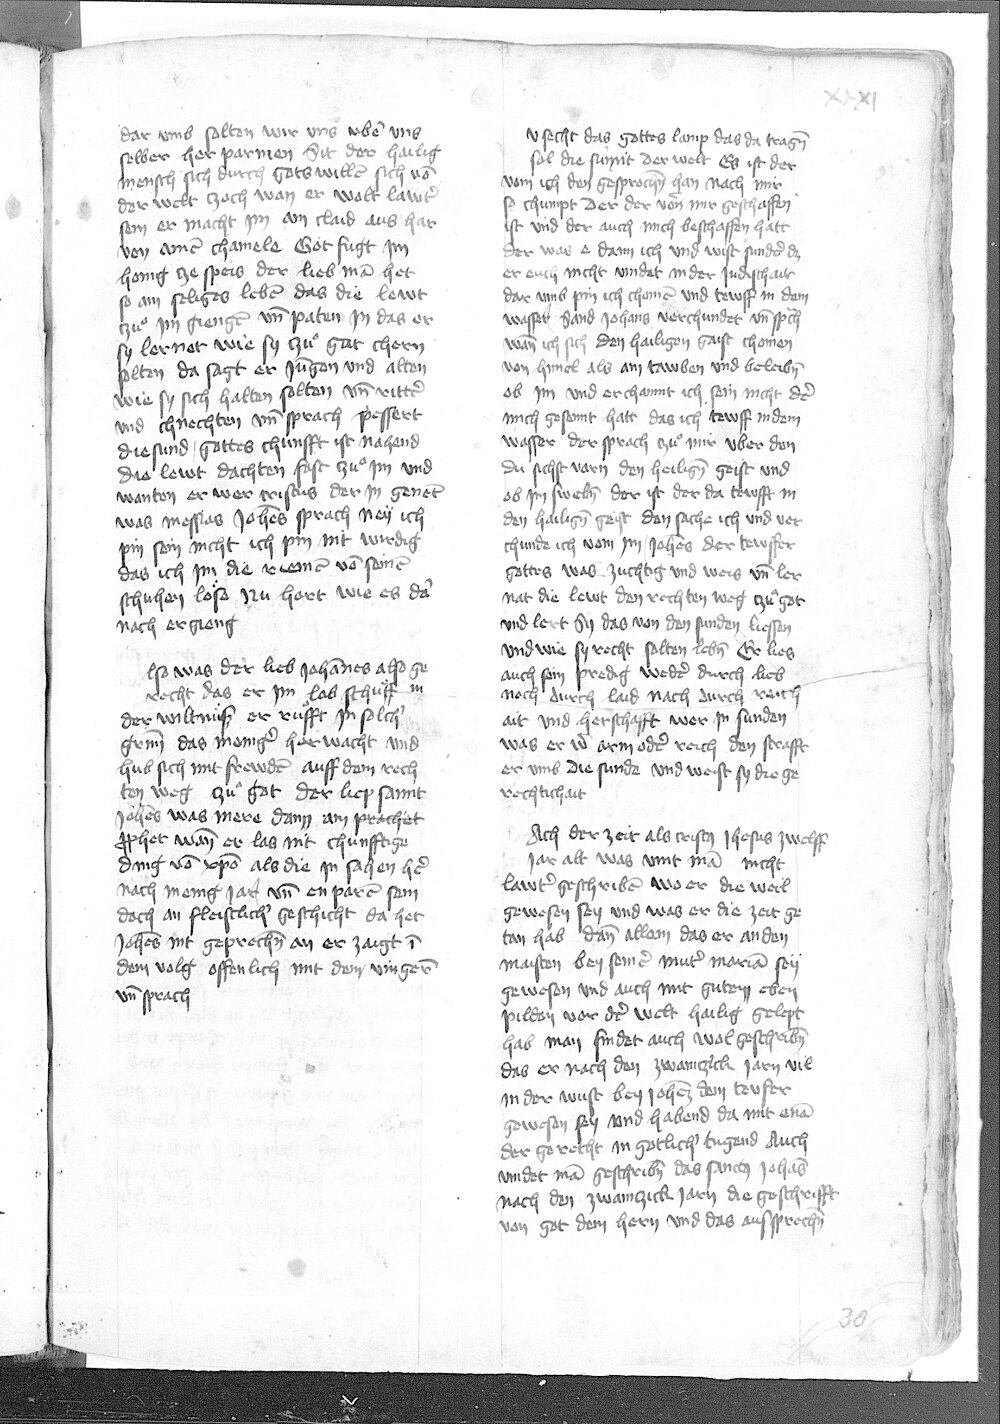 XXXI
dar vmb solten wir vns vbē vns
selber her parmen Sit der hailig
mensch sich durch gots willē sich vō
der welt zoch wan er wolt lawtˀ
sein er macht im ain claid aus har
von ainē chamele Got fugt im
honig ze speis der lieb mā het
so ain seliges lebē das die lewt
czuͦ im giengē vn̄ paten in das er
sy lernet wie sy czuͦ got chern
solten da sagt er jūgen und alten
wie sy sich halten solten vn̄ rittˀ
und chnechten vn̄ sprach pessert
die sund gottes chunfft ist nahend
die lewt dachten fast czuͦ im und
wanten er wer cristus der in genēt
was messias Johēs sprach Neÿ ich
pin sein nicht ich pin nit wirdig
das ich im die riemē vō seinē
schuhen löse Nu hort wie es dˀ
nach ergieng
lso was der lieb Johānes also ge
recht das er im lob schüff in
der wiltnüß er rüfft in solchˀ
grim̄ das menigˀ herwacht und
hub sich mit frewdē auff dem rech
ten weg czuͦ got der liep sannt
Johēs was mere dann ain prophet
wan̄ er las nit chunfftige
ding vō xpō als die in sahen hˀ
nach menig jar vn̄ enparē sein
doch an fleischlichˀ geschicht da het
Johēs nit geprechn̄ an er zaigt ī
dem volg offenlich mit dem vingerˀ
vn̄ sprach
v secht das gottes lamp das da tragn̄
sol die sunnt der welt Es ist der
vom ich den gesprochn̄ han nach mir
so chumpt der der von mir geschaffen
ist und der auch mich beschaffen hatt
der was e dann ich und wist sunder dz
er euch nicht vindet in der Judischait
dar vmb pin ich chomē und tewff in dem
wasser Sand Johans verchundet vn̄ sp̄ch
wan̄ ich sich den hailigen gaist chomen
von himel als ain tawben und beleibn̄
ob im und erchannt ich sein nicht dˀ
mich gesennt hatt das ich tewff in dem
wasser der sprach czuͦ mir vber den
du sichst varn den heilign̄ geist und
ob im swebn̄ der ist der da tewfft in
den hailign̄ geist den sache ich und ver
chunde ich vom im Johēs der tewffer
gottes was zuchtig und weis vn̄ ler
nat die lewt den rechten weg czuͦ got
und lert Sy das von den sunden liessen
und wie sy recht solten lebn̄ Er lies
auch sein predig wedˀ durch lieb
noch durch laid nach durch reich
ait und herschafft wer in sunden
was er w̄ arm odˀ reich den strafft
er vmb die sunde und weist sy die ge
rechtichait
Ach der zeit als cristꝯ Jhesus zwelff
jar alt was vint mā nicht
lawtˀ geschribē wo er die weil
gewesen sey und was er die zeit ge
tan hab dan̄ allein das er an den
maisten bey seinē mutˀ mariā seÿ
gewesen und auch mit guten eben
pilden vor dˀ welt hailig gelept
hab man findet auch wol geschribn̄
das er nach den zwainczick jarn vil
in der wüst bey Johēs dem tewfer
gewesen sey und habend da mit enā
der gerecht in gotlichˀ tugend Auch
vindet mā geschribn̄ das sanctꝯ Johās̄
nach den zwainczick jarn die geschrifft
von got dem hern und das aussprechn̄
30